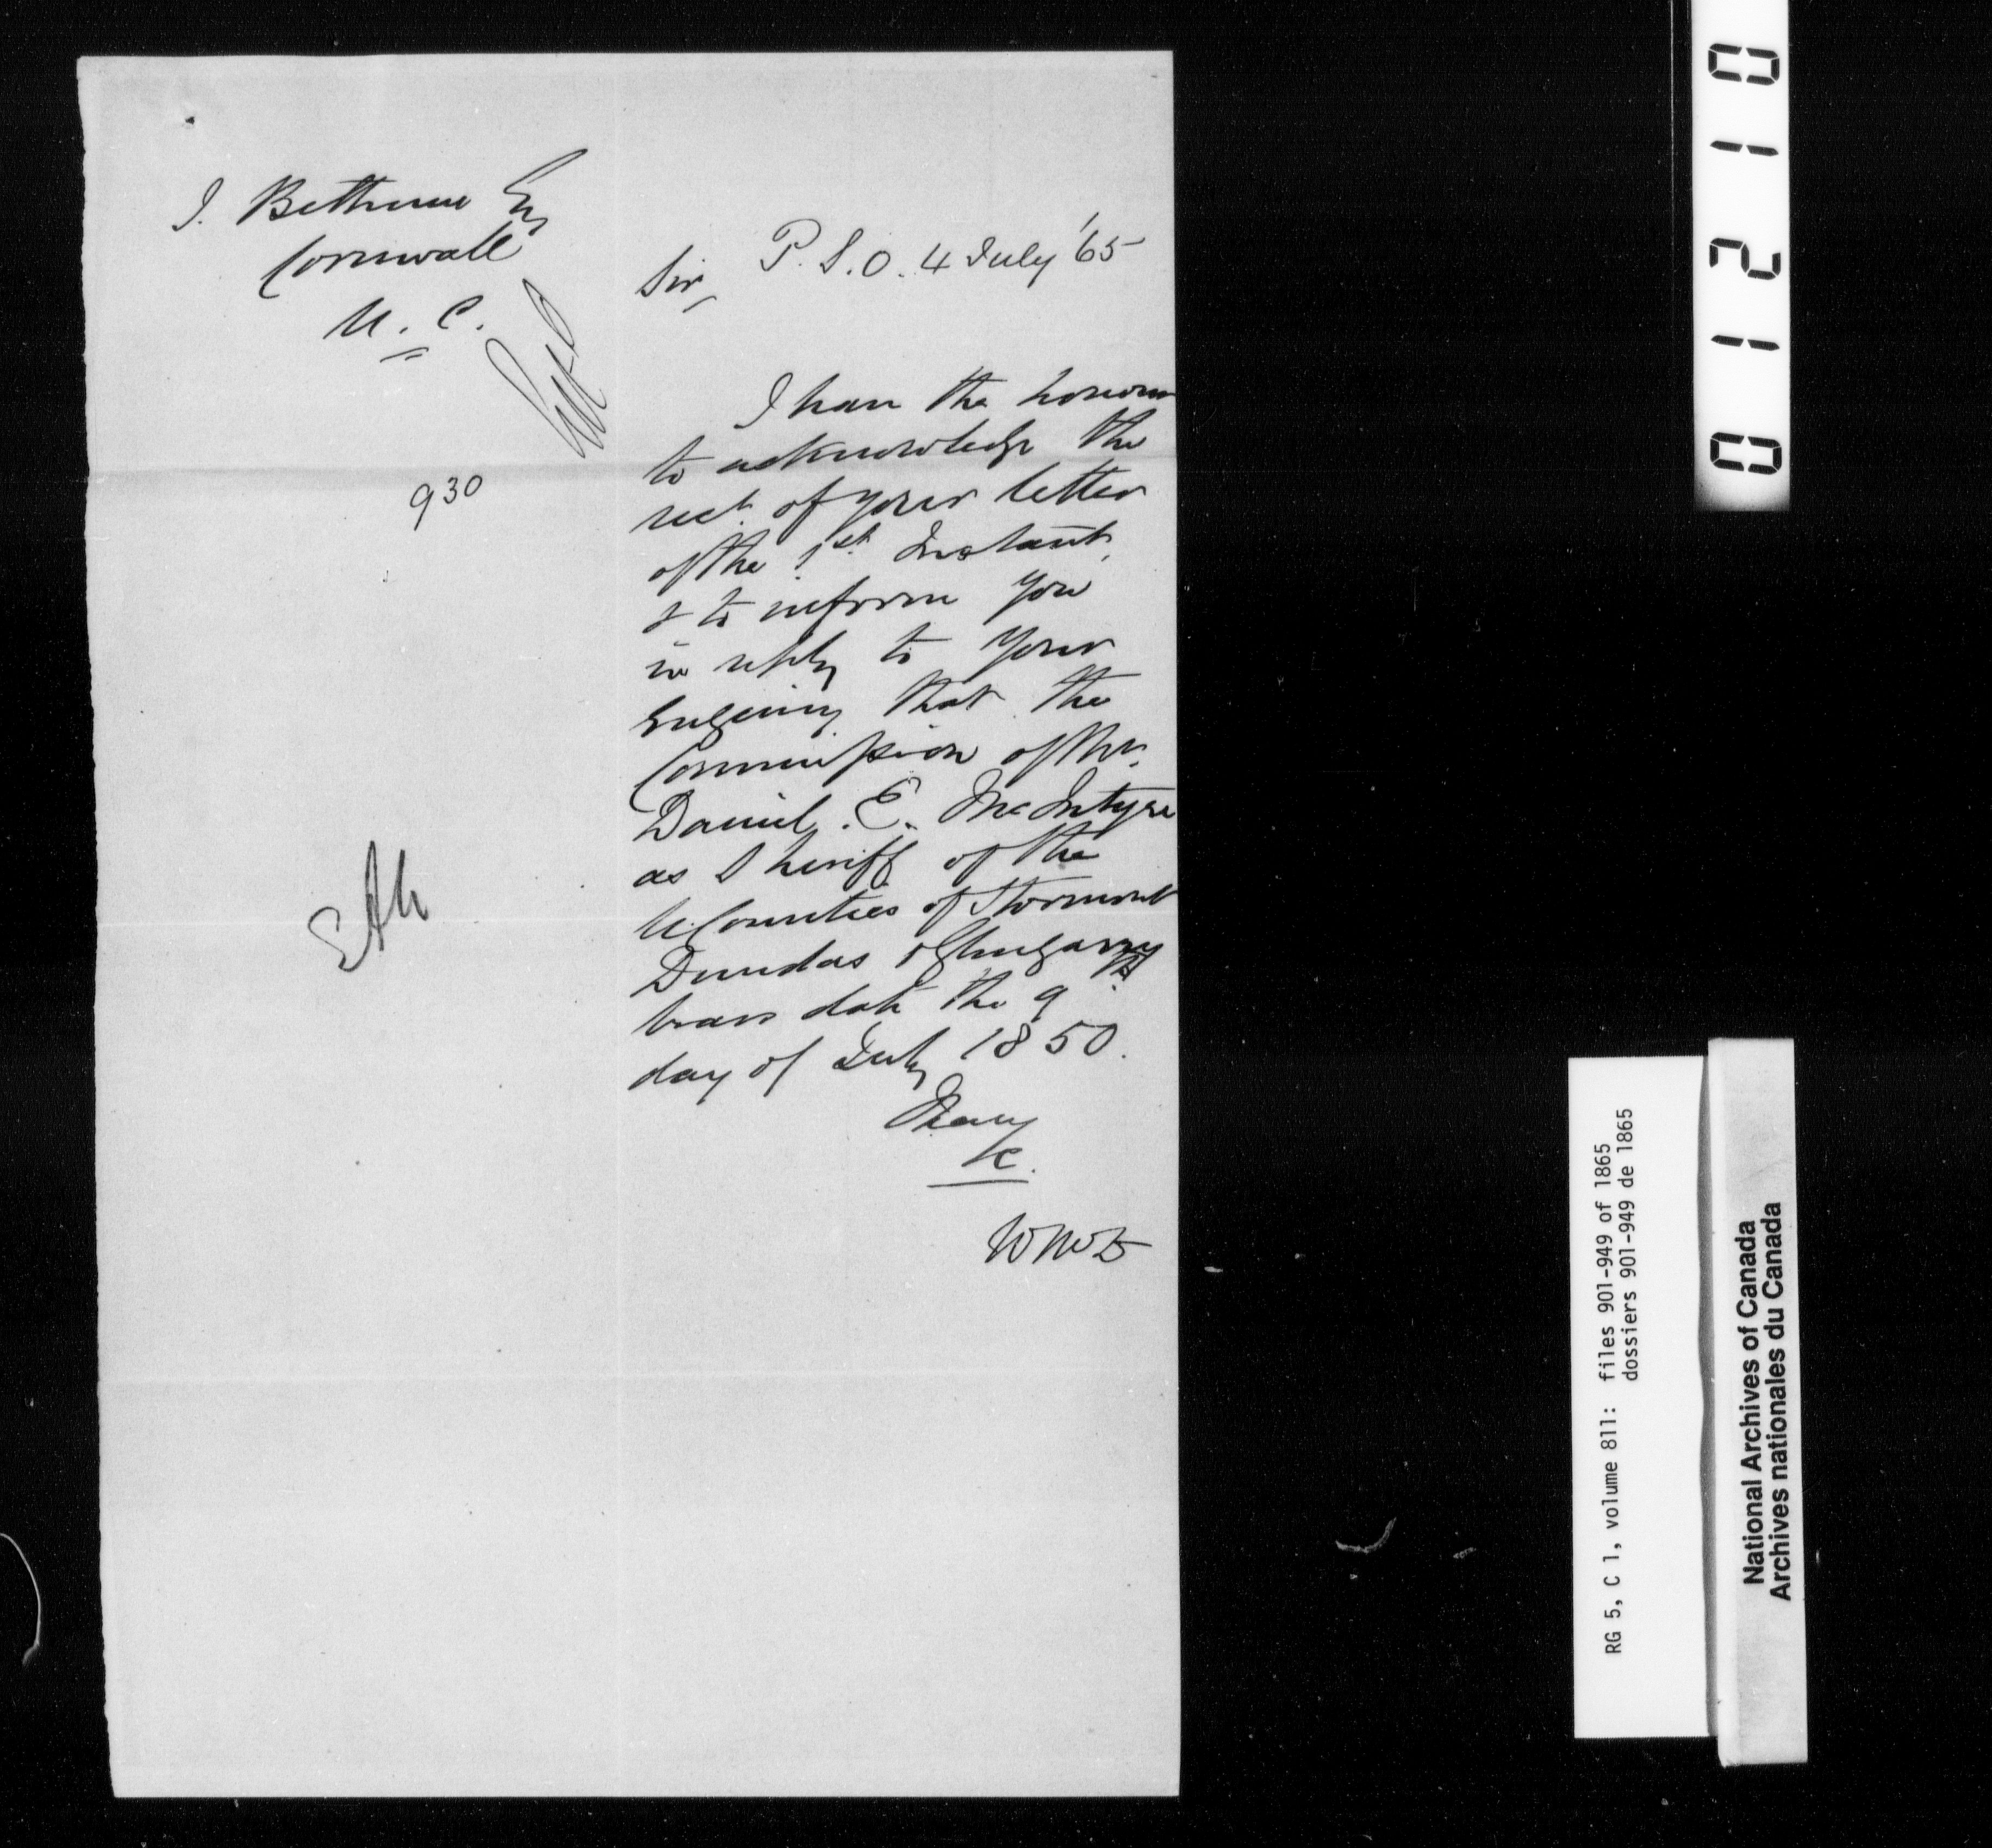 J. Bethune Esq
Cornwall
U. C.
930
EAM
P. S. O. 4 July '65
Sir,
I have the honour
to acknowledge the
rect. of your letter
of the 1st. Instant,
& to inform you
in reply to your
Enquiry that the
Commission of Mr.
Daniel. E. McIntyre
as Sheriff of the
U. Counties of Stormont
Dundas & Glengarry
bears date the 9th.
day of July 1850.
I have
&c.
01210
RG 5, C 1, volume 811: files 901-949 of 1865
dossiers 901-949 de 1865
National Archives of Canada
Archives nationales du Canada